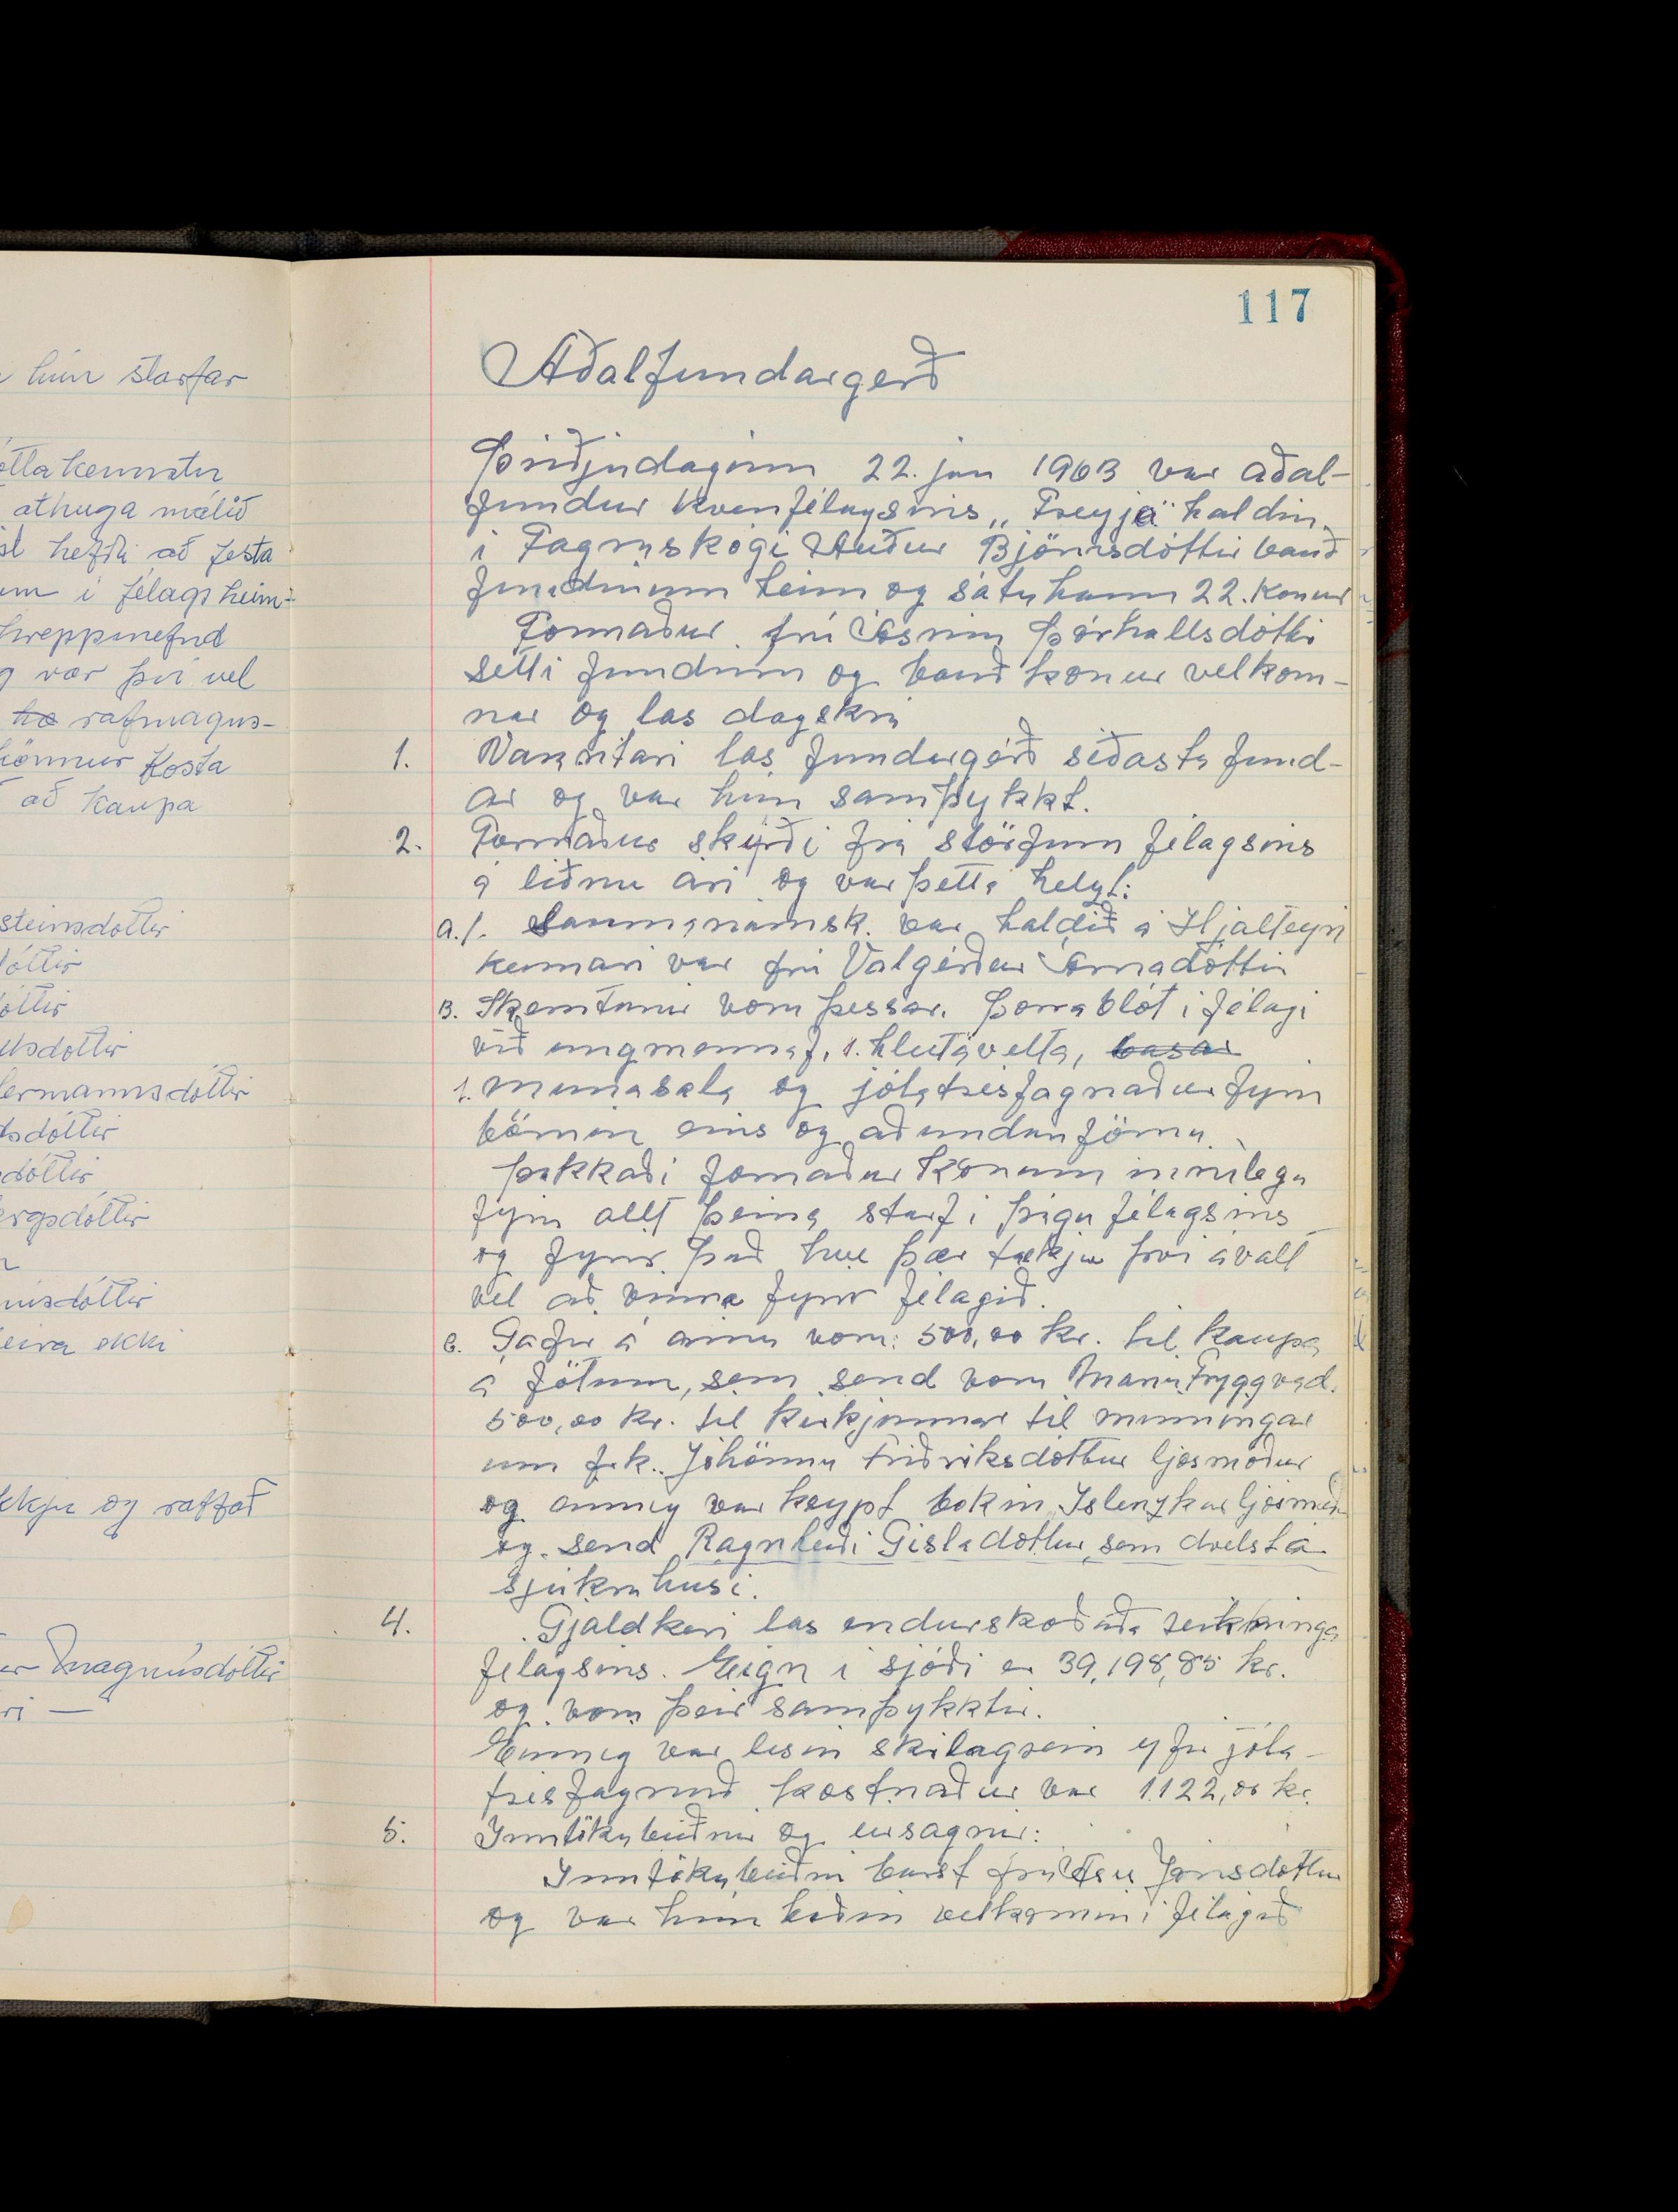 hún starfar
athuga málið
hefði að festa
í félagsheim-
hreppsnefnd
var því vel
ha rafmagns-
könnur kosta
að kaupa
steinsdóttir
dóttir
óttir
dóttir
ermannsdóttir
dóttir
dóttir
ergsdóttir
dóttir
ekki
og saffat
Magnúsdóttir
117
Aðalfundargerð
Þriðjudaginn 22. jan 1963 var aðal-
fundur kvenfélagsins „Freyja" haldin
í Fagraskógi Auður Björnsdóttir bauð
fundinum heim og sátu hann 22. konur
Formaður frú Ásrún Þórhallsdóttir
setti fundinn og bauð konur velkom-
nar og las dagskrá
1. Vararitari las fundargerð síðasta fund-
ar og var hún samþykkt.
2. Formaður skýrði frá störfum félagsins
á liðnu ári og var þetta helgt:
a.1. Saumanámsk. var haldið á Hjalteyri
kennari var frú Valgerður Árnadóttir
B. Skemtanir voru þessar. Þorrablót í félagi
við ungmennaf, 1. hlutavelta, basar
1. munasala og jólatrésfagnaður fyrir
börnin eins og að undanförnu.
Þakkaði formaður konum innilega
fyrir allt þeirra starf í þágu félagsins
og fyrir það hve þær tækju því ávallt
vel að vinna fyrir félagið.
C. Gjafir á árinu voru: 500,00 kr. til kaupa
á fötum, sem send voru Maríu Tryggvad.
500,00 kr. til kirkjunnar til minningar
um frk. Jóhönnu Friðriksdóttur ljósmóður
og einnig var keypt bókin Íslenzkar ljósmæð
og send Ragnheiði Gísladóttur, sem dvelst á
sjúkrahúsi.
4. Gjaldkeri las endurskoðaða reikninga
félagsins. Eign í sjóði er 39,198,85 kr.
og voru þeir samþykktir.
Einnig var lesin skilagrein yfir jóla-
trésfagnað kostnaður var 1.122,00 kr.
5. Inntökubeiðnir og úrsagnir:
Inntökubeiðni barst frá Jónsdóttur
og var hún boðin velkomin í félagið